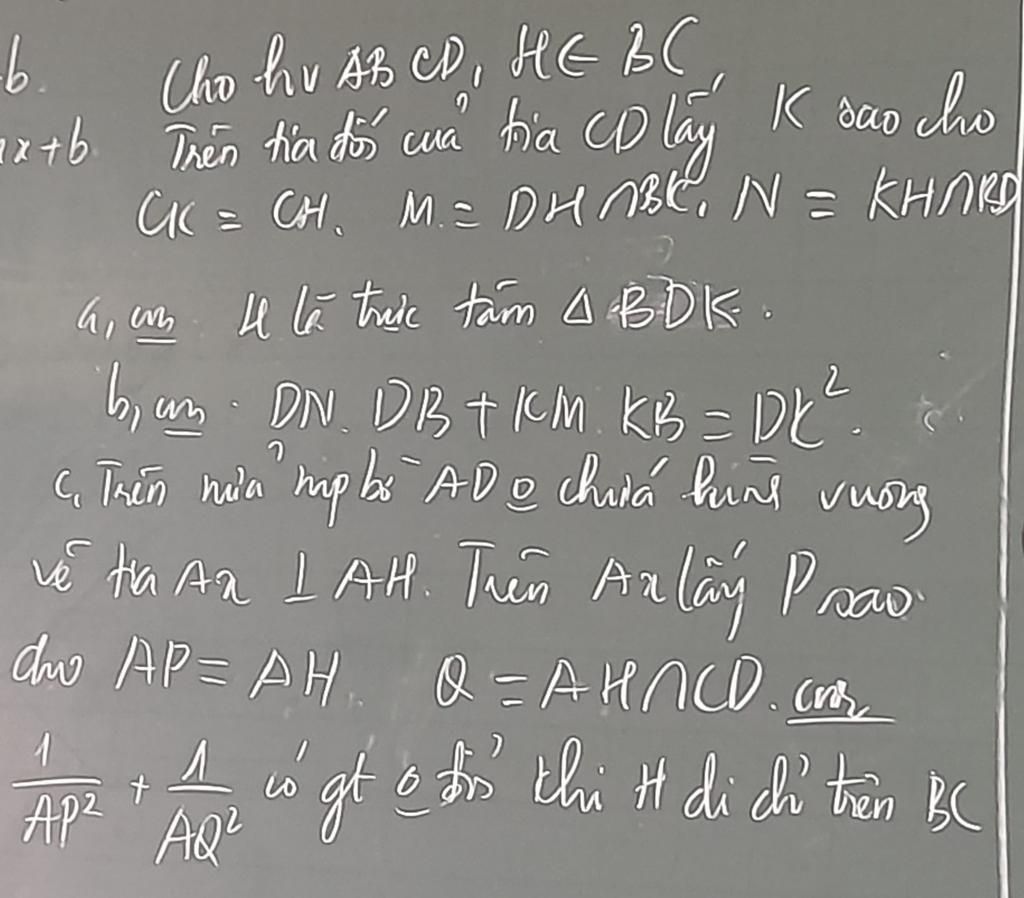 b. Cho hv ABCD, H ∈ BC,
x+b Trên tia đối của tia CD lấy K sao cho
CK = CH. M = DH ∩ BK, N = KH ∩ BD
a, cm H là trực tâm Δ BDK.
b, cm. DN. DB + KM. KB = DK².
c, Trên nửa mp bờ AD o chứa hình vuông
vẽ tia Ax ⊥ AH. Trên Ax lấy P sao
cho AP = AH. Q = AH ∩ CD. cmr
1/AP² + 1/AQ² có gt o đổi khi H di ch' trên BC